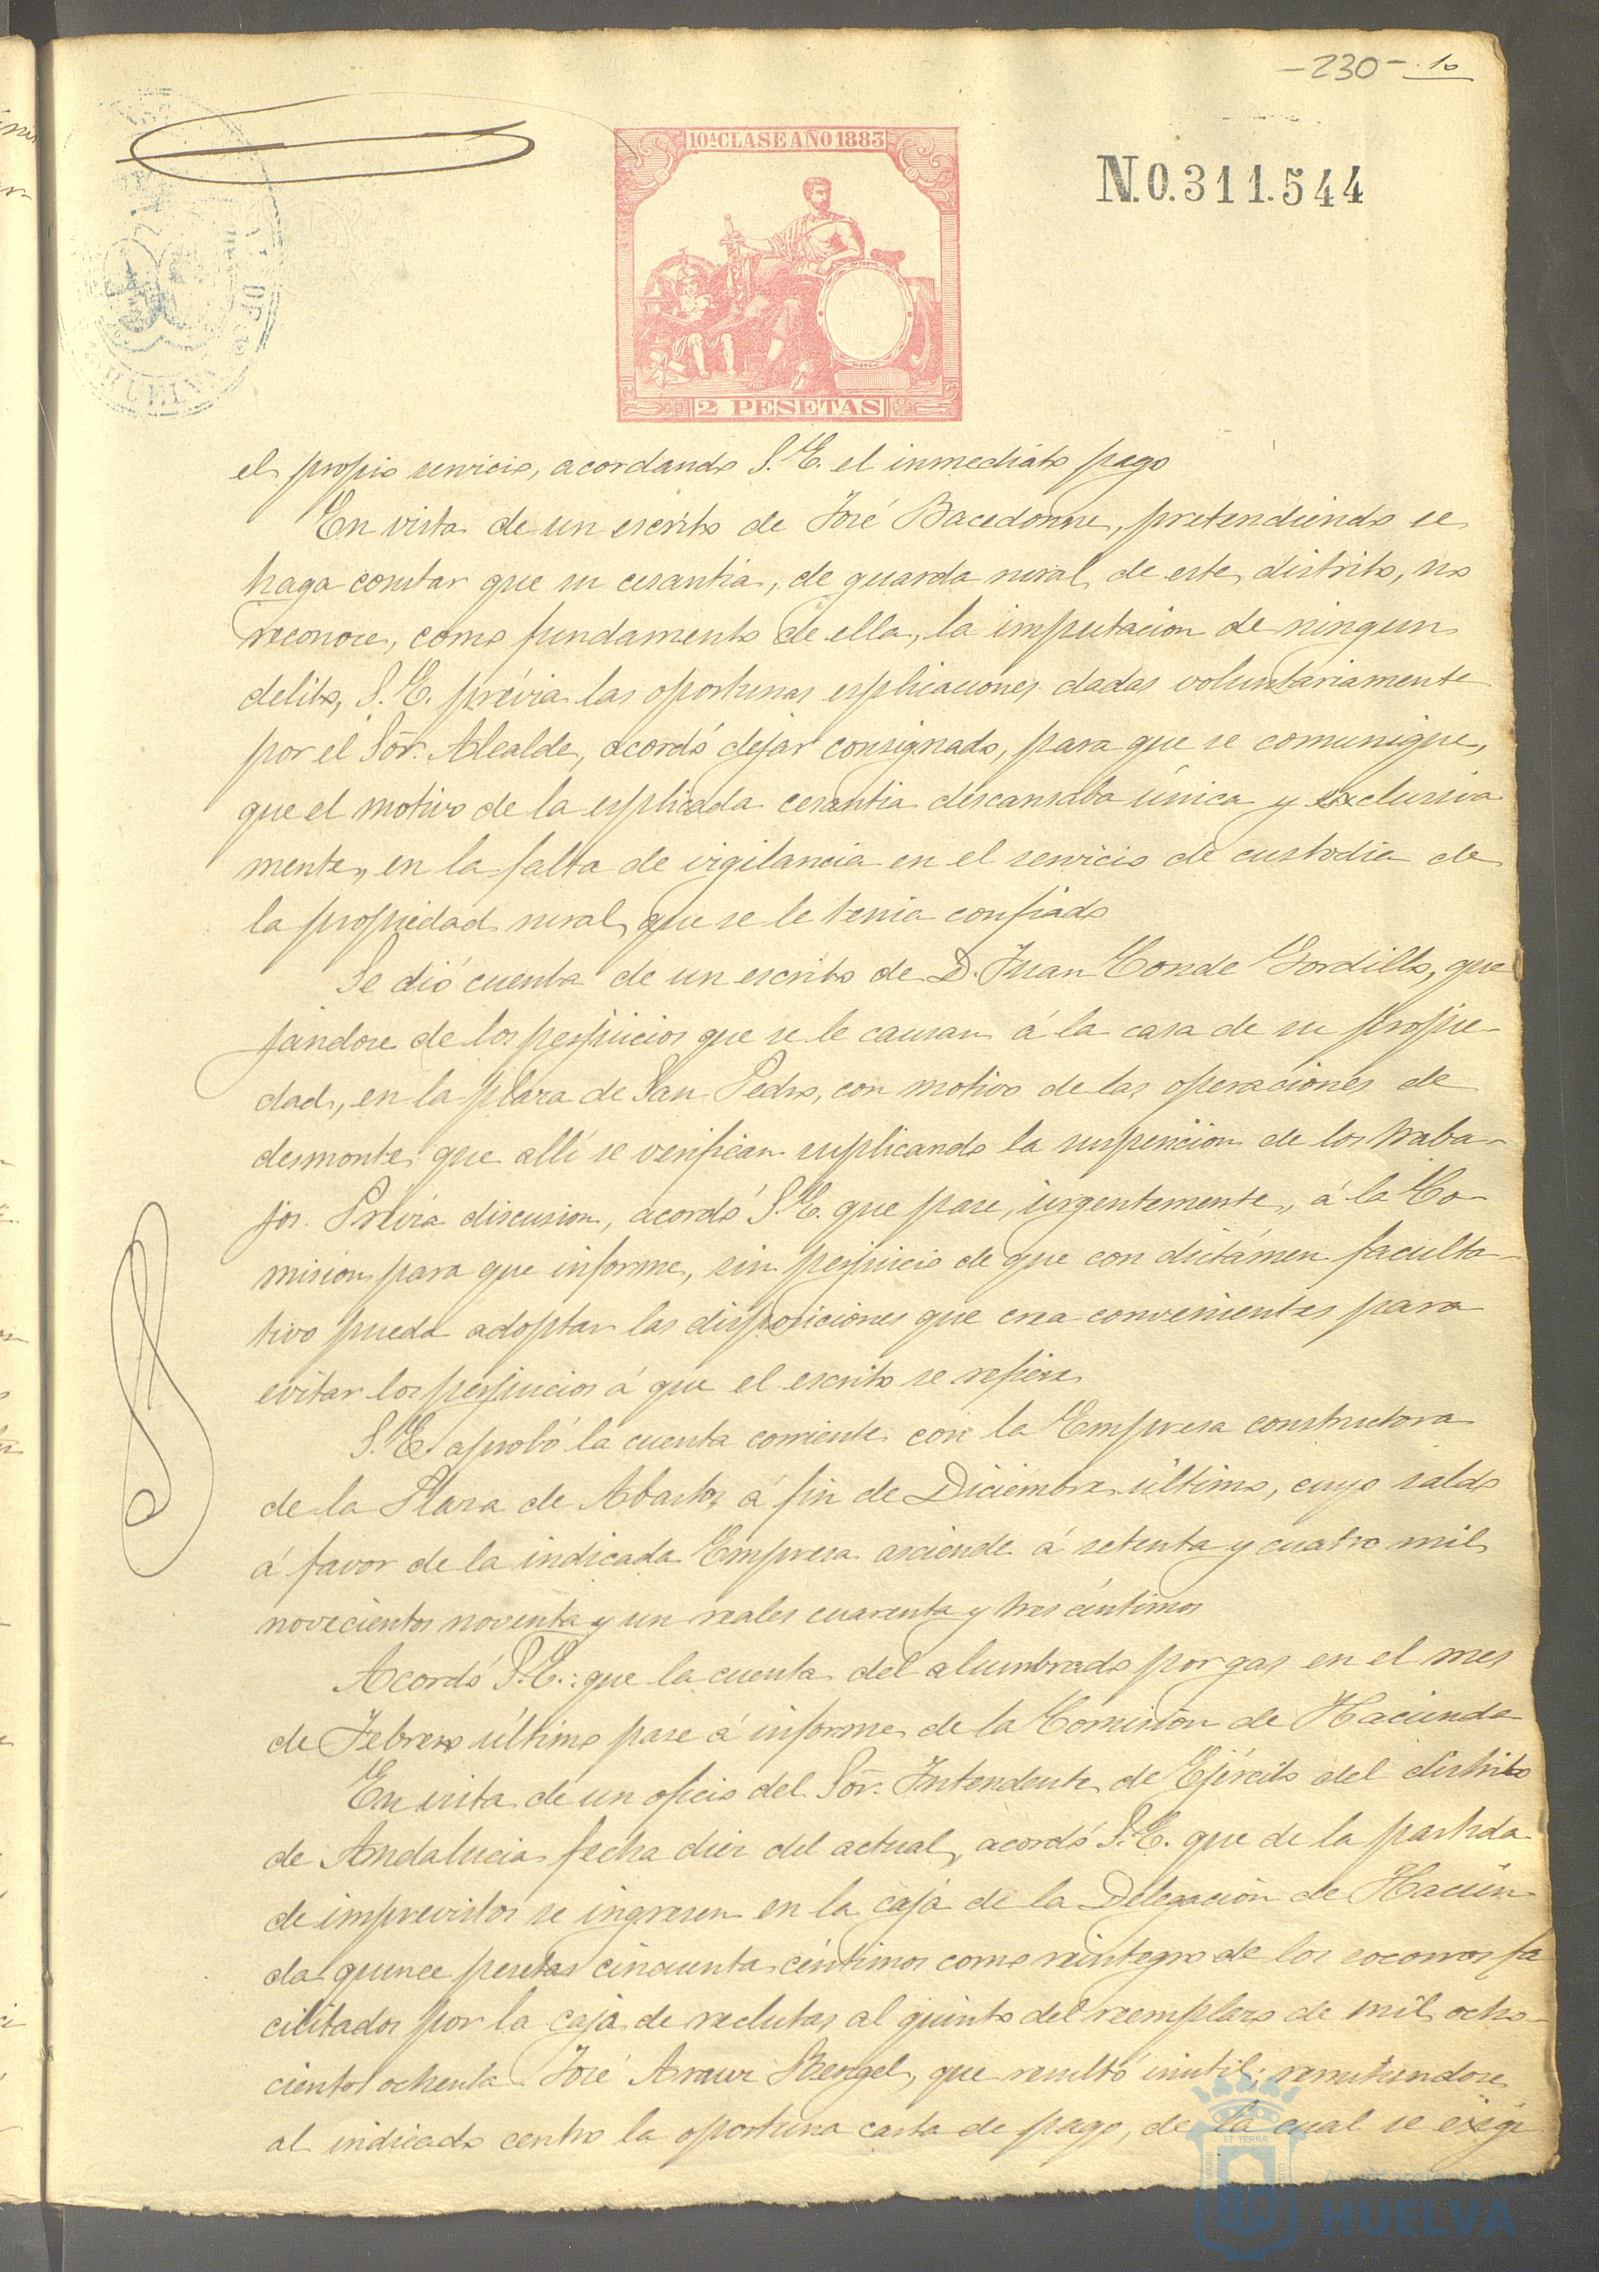 -230- 10
10ª CLASE AÑO 1883
N.0.311.544
2 PESETAS
el propio servicio, acordando S. E. el inmediato pago
En vista de un escrito de José Bacedonne, pretendiendo se
haga constar que su cesantia, de guarda rural de este distrito, no
reconoce, como fundamento de ella, la imputacion de ningun
delito, S. E. prévia las oportunas esplicaciones dadas voluntariamente
por el Sor. Alcalde, acordó dejar consignado, para que se comunique,
que el motivo de la esplicada cesantia descansaba única y exclusiva
mente, en la falta de vigilancia en el servicio de custodia de
la propiedad rural, que se le tenia confiado
Se dió cuenta de un escrito de D. Juan Conde Gordillo, que
jandose de los perjuicios que se le causan á la casa de su propie-
dad, en la plaza de San Pedro, con motivo de las operaciones de
desmonte que allí se verifican suplicando la suspencion de los traba-
jos. Prévia discusion, acordó S. E. que pase, urgentemente, á la Co-
mision para que informe, sin perjuicio de que con dictámen faculta-
tivo pueda adoptar las disposiciones que crea convenientes para
evitar los perjuicios á que el escrito se refiere
S. E. aprobó la cuenta corriente con la Empresa constructora
de la Plaza de Abastos á fin de Diciembre último, cuyo saldo
á favor de la indicada Empresa asciende á setenta y cuatro mil
novecientos noventa y un reales cuarenta y tres céntimos
Acordó S. E.: que la cuenta del alumbrado por gas en el mes
de Febrero último pase á informe de la Comision de Hacienda
En vista de un oficio del Sor. Intendente de Ejército del distrito
de Andalucia fecha diez del actual, acordó S. E. que de la partida
de imprevistos se ingresen en la caja de la Delegacion de Hacien
da quince pesetas cincuenta céntimos como reintegro de los socorros fa
cilitados por la caja de reclutas al quinto del reemplazo de mil ocho-
cientos ochenta José Arauz Rengel, que resultó inutil; remitiendose
al indicado centro la oportuna carta de pago, de la cual se exigi
HUELVA